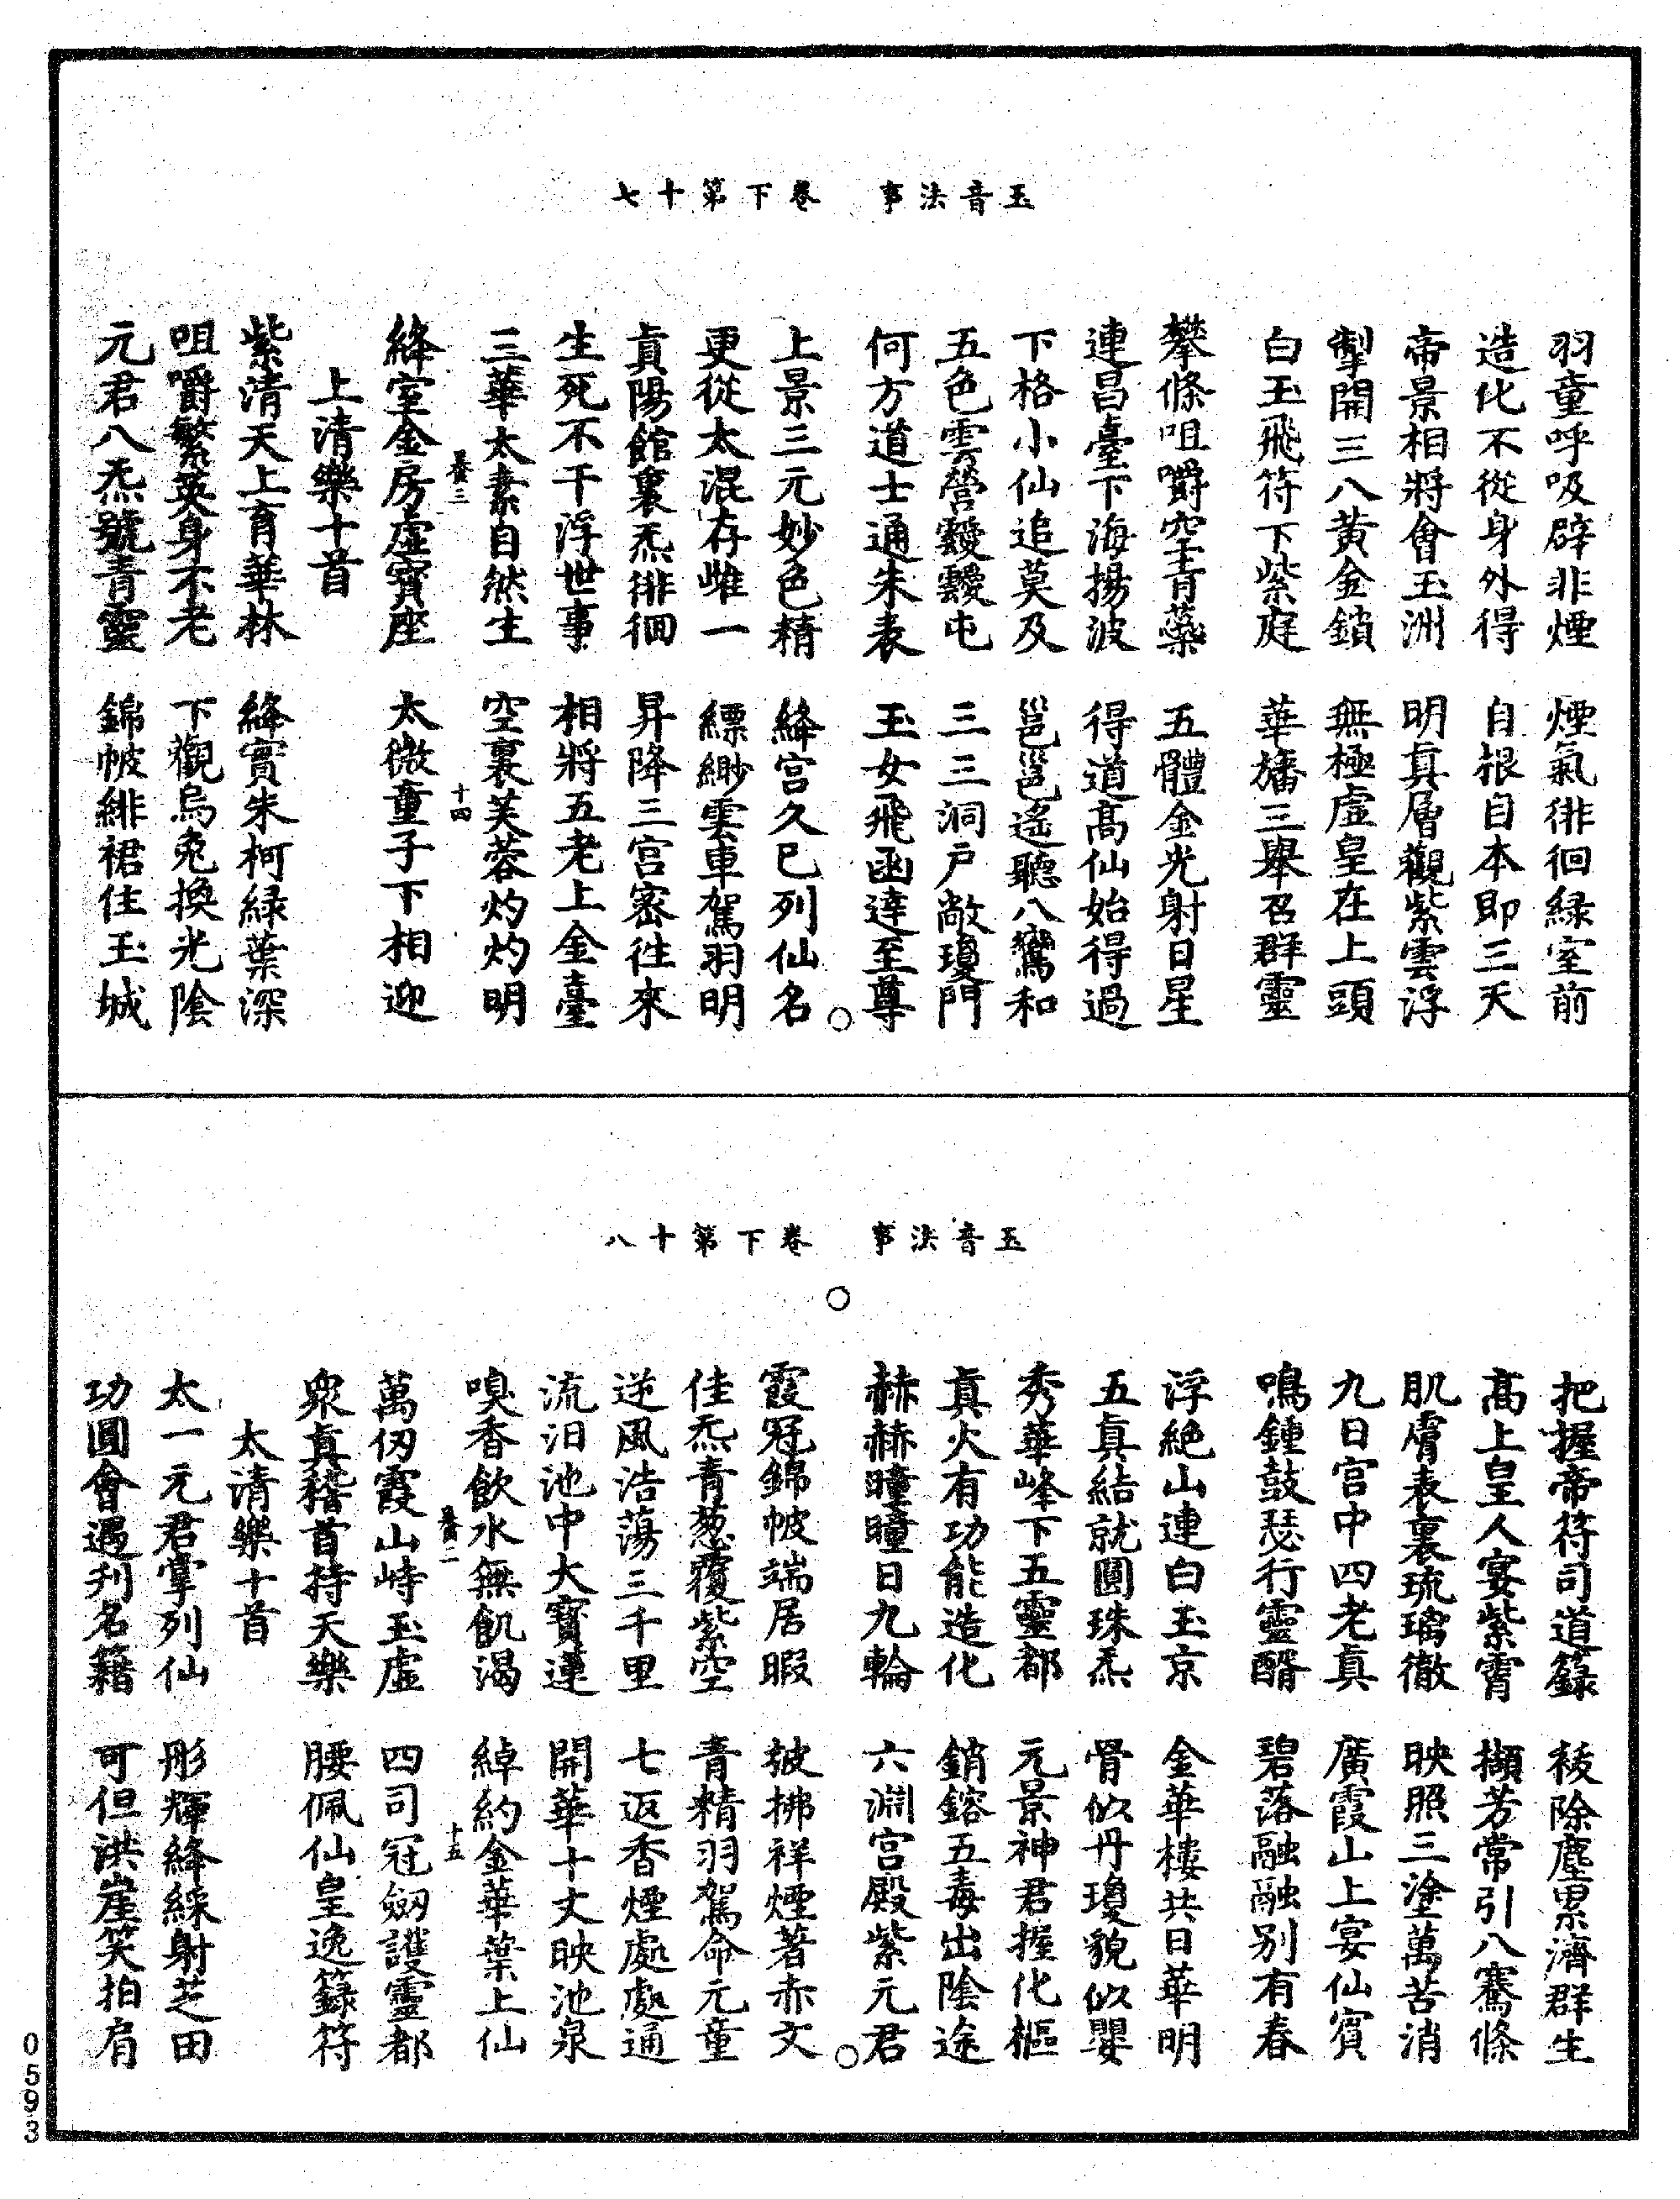 玉音法事　卷下第十七
羽童呼吸辟非煙　煙氣徘徊緑室前
造化不從身外得　自根自本即三天
帝景相將會玉洲　明真層觀紫雲浮
掣開三八黃金鎖　無極虛皇在上頭
白玉飛符下紫庭　華旛三舉召群靈
攀條咀嚼空青蘂　五體金光射日星
連昌臺下海揚波　得道高仙始得過
下格小仙追莫及　邕邕遙聽八鸞和
五色雲營靉靉屯　三三洞戶敞瓊門
何方道士通朱表　玉女飛函達至尊
上景三元妙色精　絳宮久已列仙名
更從太混存雌一　縹緲雲車駕羽明
真陽館裏炁徘徊　昇降三宮密往來
生死不干浮世事　相將五老上金臺
三華太素自然生　空裏芙蓉灼灼明
養三　十四
絳室金房虛寶座　太微童子下相迎
上清樂十首
紫清天上育華林　絳實朱柯緑葉深
咀嚼繁英身不老　下觀烏兔換光陰
元君八炁號青靈　錦帔緋裙住玉城
玉音法事　卷下第十八
把握帝符司道籙　祓除塵累濟群生
高上皇人宴紫霄　擷芳常引八騫條
肌膚表裏琉璃徹　映照三塗萬苦消
九日宮中四老真　廣霞山上宴仙賓
鳴鍾鼓瑟行靈醑　碧落融融別有春
浮絶山連白玉京　金華樓共日華明
五真結就圓珠炁　骨似丹瓊貌似嬰
秀華峰下五靈都　元景神君握化樞
真火有功能造化　銷鎔五毒出陰途
赫赫曈曈日九輪　六淵宮殿紫元君
霞冠錦帔端居暇　披拂祥煙著赤文
佳炁青葱覆紫空　青精羽駕命元童
逆風浩蕩三千里　七返香煙處處通
流汨池中大寶蓮　開華十丈映池泉
嗅香飲水無飢渴　綽約金華葉上仙
養二　十五
萬仞霞山峙玉虛　四司冠劒護靈都
衆真稽首持天樂　腰佩仙皇逸籙符
太清樂十首
太一元君掌列仙　彤輝絳綵射芝田
功圓會遇刋名籍　可但洪崖笑拍肩
0593